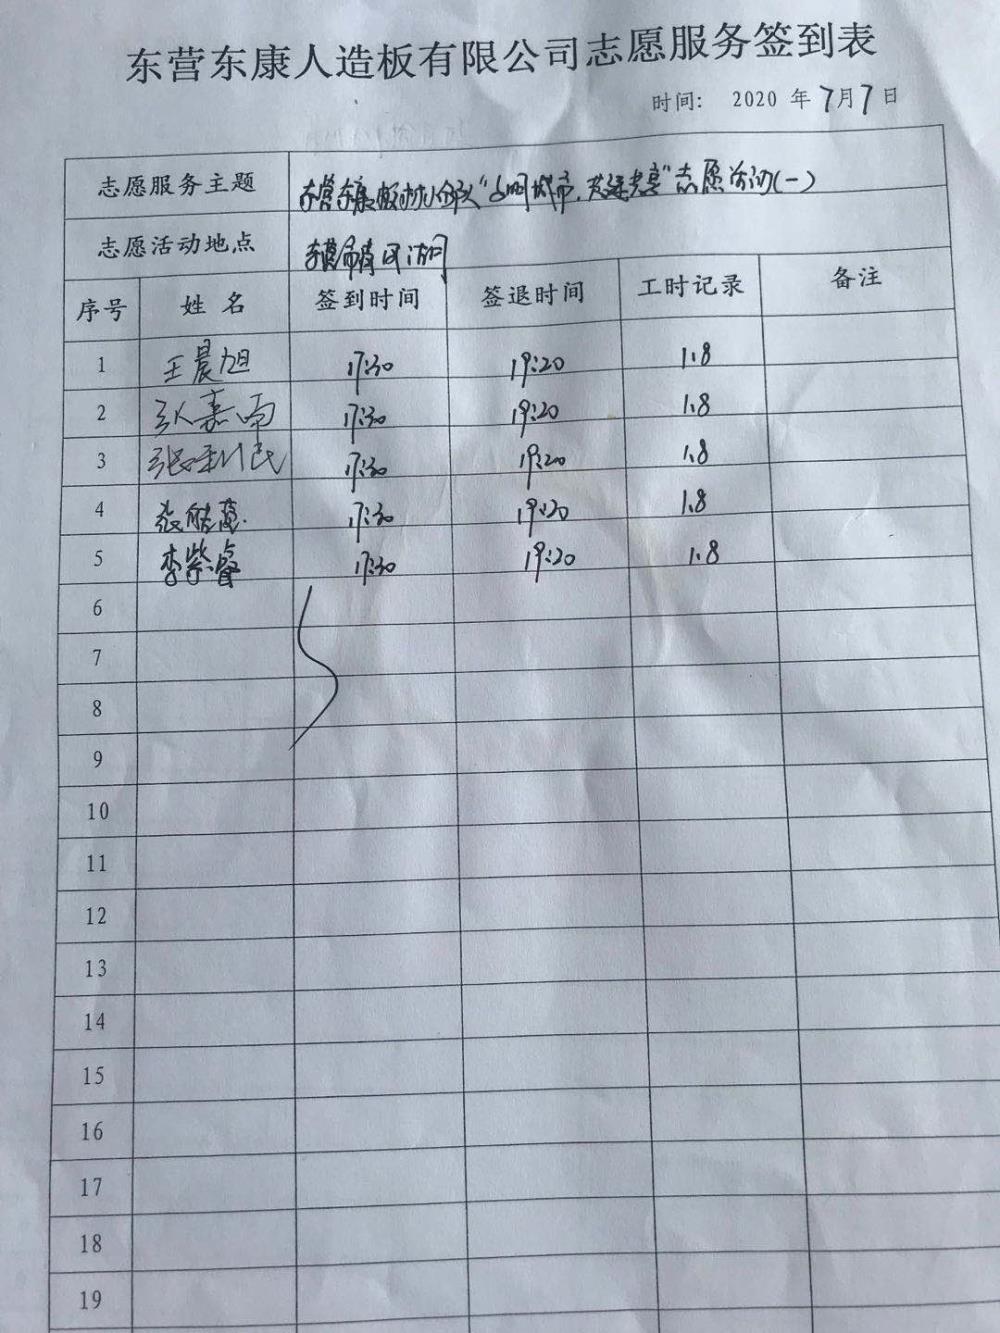 东营东康人造板有限公司志愿服务签到表
时间: 2020 年 7月7日
志愿服务主题 "文明城市,共建共享"志愿活动(一)
志愿活动地点 东营市
序号 姓名 签到时间 签退时间 工时记录 备注
1 王晨旭 17:30 19:20 1.8
2 张嘉雨 17:30 19:20 1.8
3 张利民 17:30 19:20 1.8
4 张皓 17:30 19:20 1.8
5 李紫睿 17:30 19:20 1.8
6
7
8
9
10
11
12
13
14
15
16
17
18
19